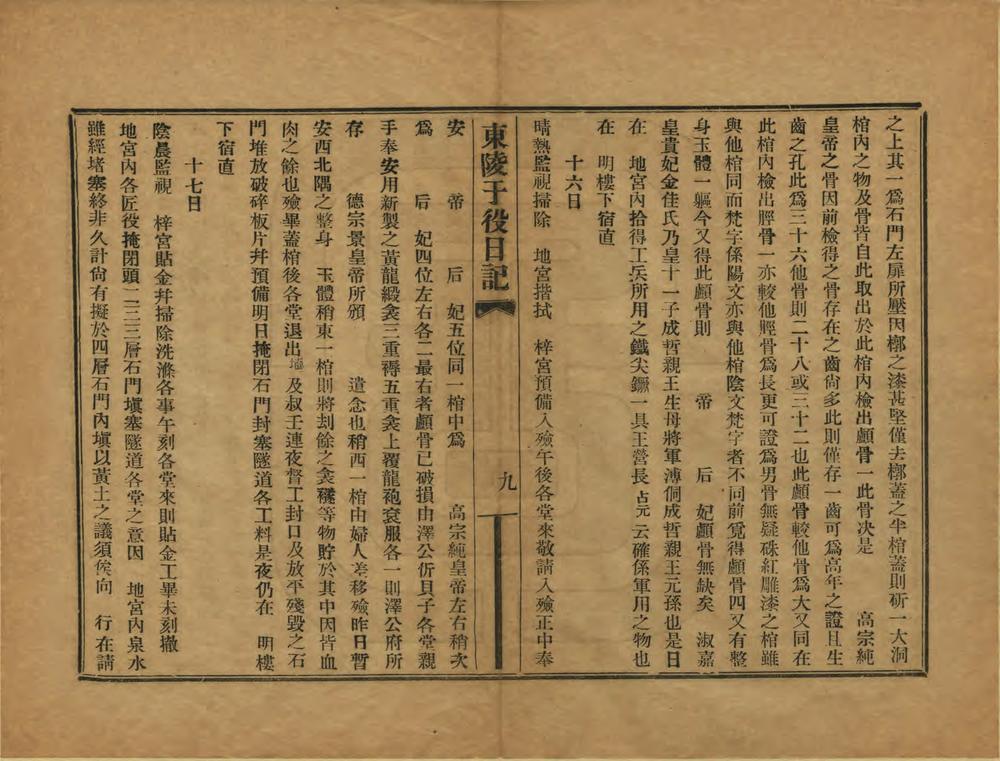 之上其一爲石門左扉所壓因槨之漆甚堅僅去槨蓋之半棺蓋則斫一大洞
棺內之物及骨皆自此取出於此棺內檢出顱骨一此骨决是　高宗純
皇帝之骨因前檢得之骨存在之齒尙多此則僅存一齒可爲高年之證且生
齒之孔此爲三十六他骨則二十八或三十二也此顱骨較他骨爲大又同在
此棺內檢出脛骨一亦較他脛骨爲長更可證爲男骨無疑硃紅雕漆之棺雖
與他棺同而梵字係陽文亦與他棺陰文梵字者不同前覓得顱骨四又有整
身玉體一軀今又得此顱骨則　帝　后　妃顱骨無缺矣　淑嘉
皇貴妃金佳氏乃皇十一子成哲親王生母將軍溥侗成哲親王元孫也是日
在　地宮內拾得工兵所用之鐵尖鐝一具王營長占元云確係軍用之物也
在　明樓下宿直
十六日
晴熱監視掃除　地宮揩拭　梓宮預備入殮午後各堂來敬請入殮正中奉
東陵于役日記
九
安　帝　后　妃五位同一棺中爲　高宗純皇帝左右稍次
爲　后　妃四位左右各二最右者顱骨已破損由澤公伒貝子各堂親
手奉安用新製之黃龍緞衾三重褥五重衾上覆龍袍袞服各一則澤公府所
存　德宗景皇帝所頒　遺念也稍西一棺由婦人差移殮昨日暫
安西北隅之整身　玉體稍東一棺則將刦餘之衾襚等物貯於其中因皆血
肉之餘也殮畢蓋棺後各堂退出壎及叔壬連夜督工封口及放平殘毀之石
門堆放破碎板片幷預備明日掩閉石門封塞隧道各工料是夜仍在　明樓
下宿直
十七日
陰晨監視　梓宮貼金幷掃除洗滌各事午刻各堂來則貼金工畢未刻撤
地宮內各匠役掩閉頭二三層石門塡塞隧道各堂之意因　地宮內泉水
雖經堵塞終非久計尙有擬於四層石門內塡以黃土之議須俟向　行在請